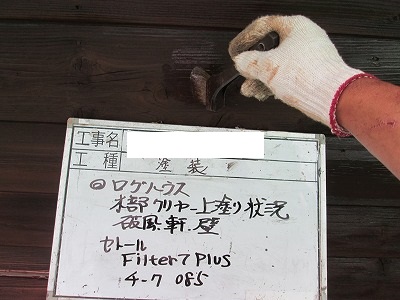 工事名
工種 塗装
◎ログハウス
木部クリヤー上塗り状況
破風.軒.壁
セトール
Filter7 Plus
4-7 085